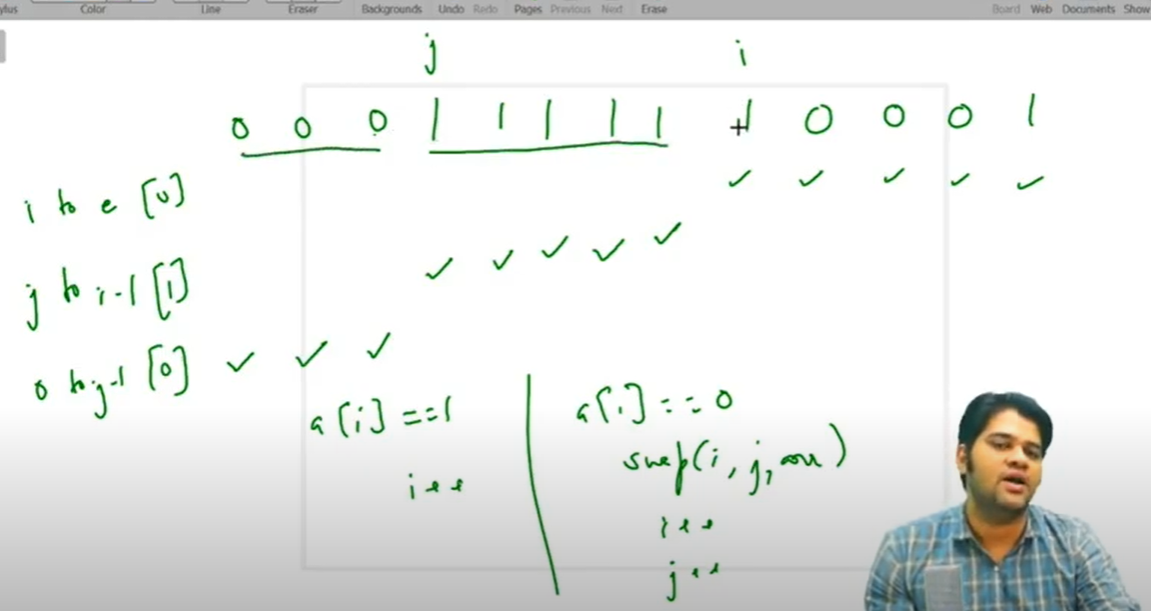 ylus Color Line Eraser Backgrounds Undo Redo Pages Previous Next Erase Board Web Documents Show
j i
0 0 0 1 1 1 1 1 1 0 0 0 1
i to e [U]
j to i-1 [1]
0 to j-1 [0]
a[i] ==1
i++
a[i] == 0
swap(i, j, arr)
i++
j++